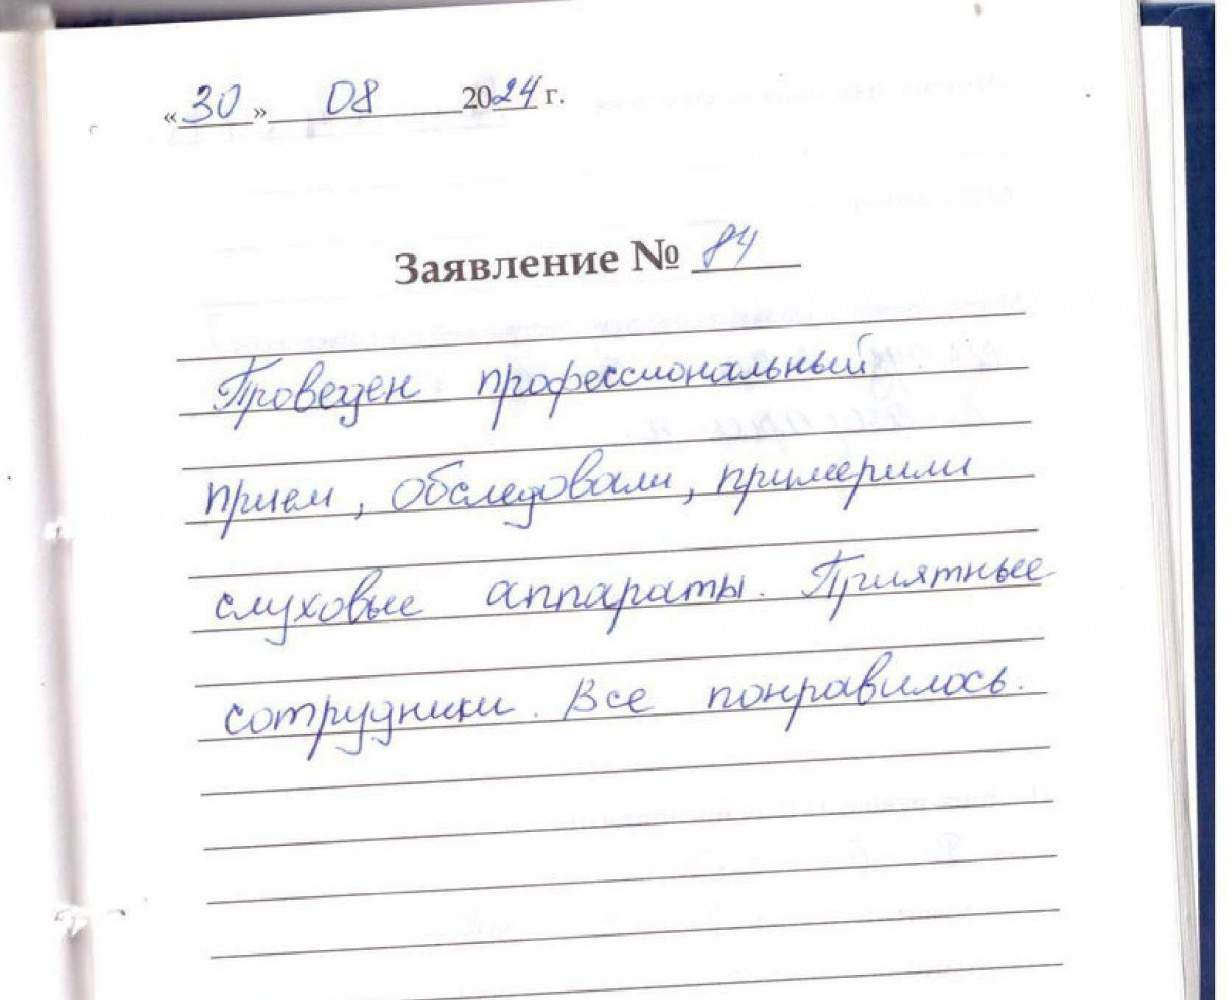 «30» 08 2024 г.
Заявление № 84
Проведен профессиональный
прием, обследовали, примерили
слуховые аппараты. Приятные
сотрудники. Все понравилось.